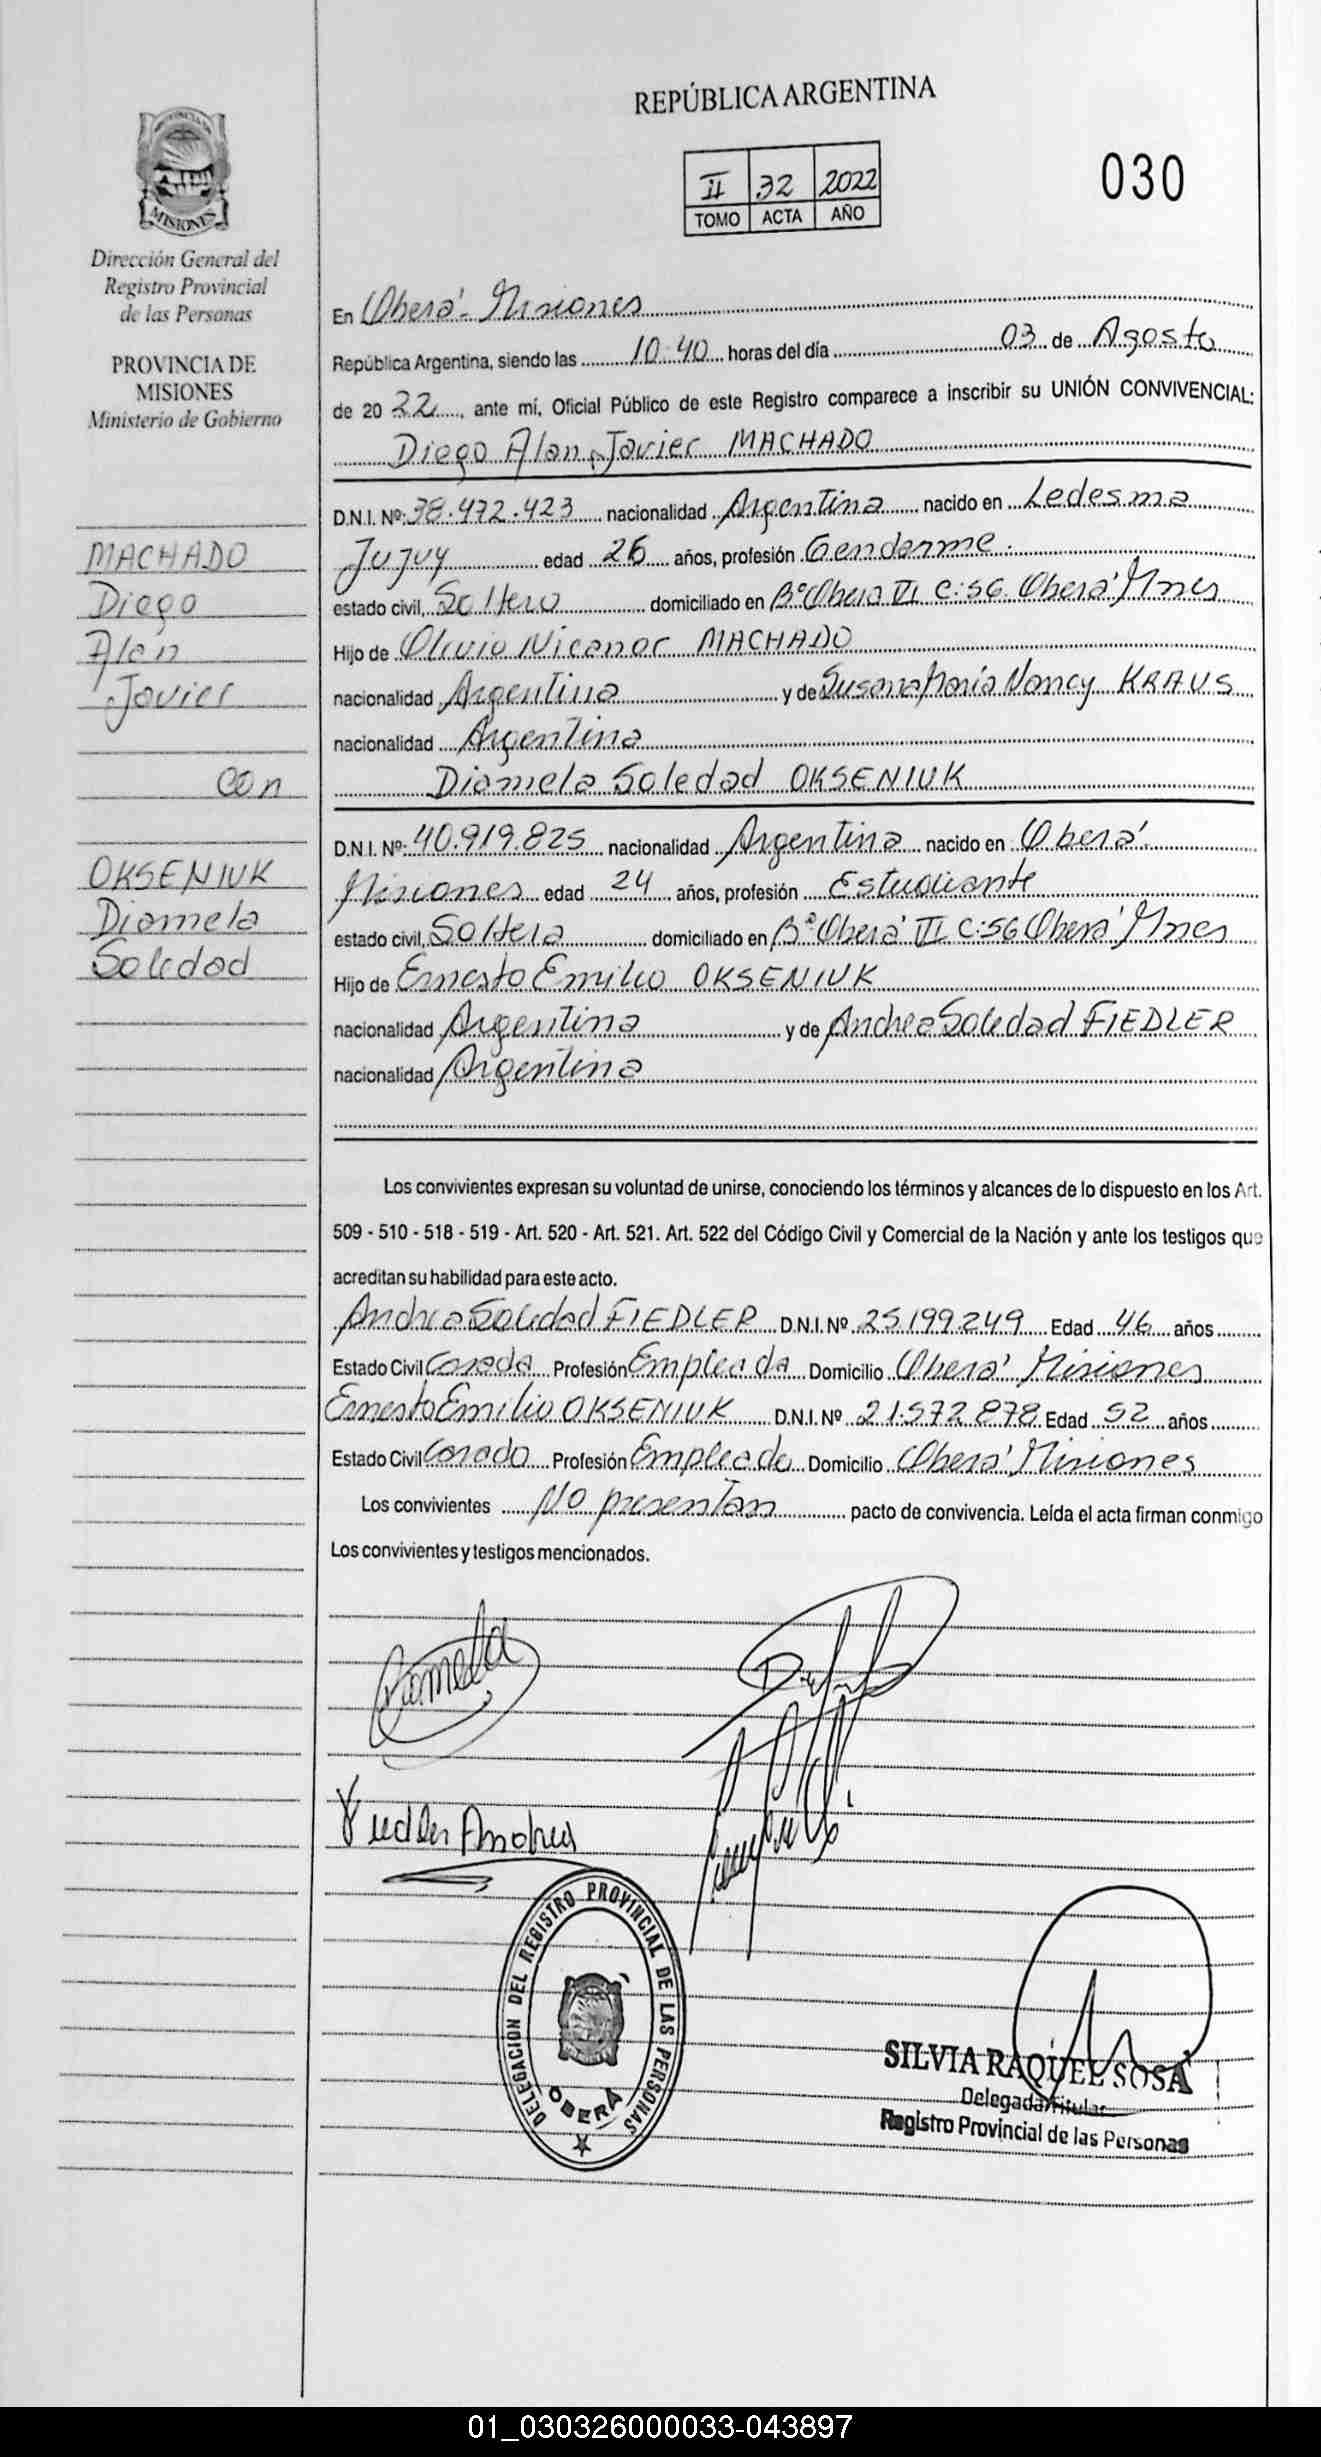 REPÚBLICA ARGENTINA
II 32 2022
TOMO ACTA AÑO
030
MISIONES
Dirección General del
Registro Provincial
de las Personas
PROVINCIA DE
MISIONES
Ministerio de Gobierno
MACHADO
Diego
Alan
Javier
con
OKSENIUK
Diamela
Soledad
En Oberá - Misiones
República Argentina, siendo las 10:40 horas del día 03 de Agosto
de 20 22, ante mí, Oficial Público de este Registro comparece a inscribir su UNIÓN CONVIVENCIAL:
Diego Alan Javier MACHADO
D.N.I. Nº: 38.472.423 nacionalidad Argentina nacido en Ledesma
Jujuy edad 26 años, profesión Gendarme.
estado civil, Soltero domiciliado en Bº Oberá VI C:56 Oberá Mnes
Hijo de Olivio Nicanor MACHADO
nacionalidad Argentina y de Susana María Nancy KRAUS
nacionalidad Argentina
Diamela Soledad OKSENIUK
D.N.I. Nº: 40.919.825 nacionalidad Argentina nacido en Oberá
Misiones edad 24 años, profesión Estudiante
estado civil, Soltera domiciliado en Bº Oberá VI C:56 Oberá Mnes
Hijo de Ernesto Emilio OKSENIUK
nacionalidad Argentina y de Andrea Soledad FIEDLER
nacionalidad Argentina
Los convivientes expresan su voluntad de unirse, conociendo los términos y alcances de lo dispuesto en los Art.
509 - 510 - 518 - 519 - Art. 520 - Art. 521. Art. 522 del Código Civil y Comercial de la Nación y ante los testigos que
acreditan su habilidad para este acto.
Andrea Soledad FIEDLER D.N.I. Nº 25.199.249 Edad 46 años
Estado Civil Casada Profesión Empleada Domicilio Oberá Misiones
Ernesto Emilio OKSENIUK D.N.I. Nº 21.572.878 Edad 52 años
Estado Civil Casado Profesión Empleado Domicilio Oberá Misiones
Los convivientes No presentan pacto de convivencia. Leída el acta firman conmigo
Los convivientes y testigos mencionados.
Fiedler Andrea
DELEGACION DEL REGISTRO PROVINCIAL DE LAS PERSONAS
OBERÁ
SILVIA RAQUEL SOSA
Delegada Titular
Registro Provincial de las Personas
01_030326000033-043897